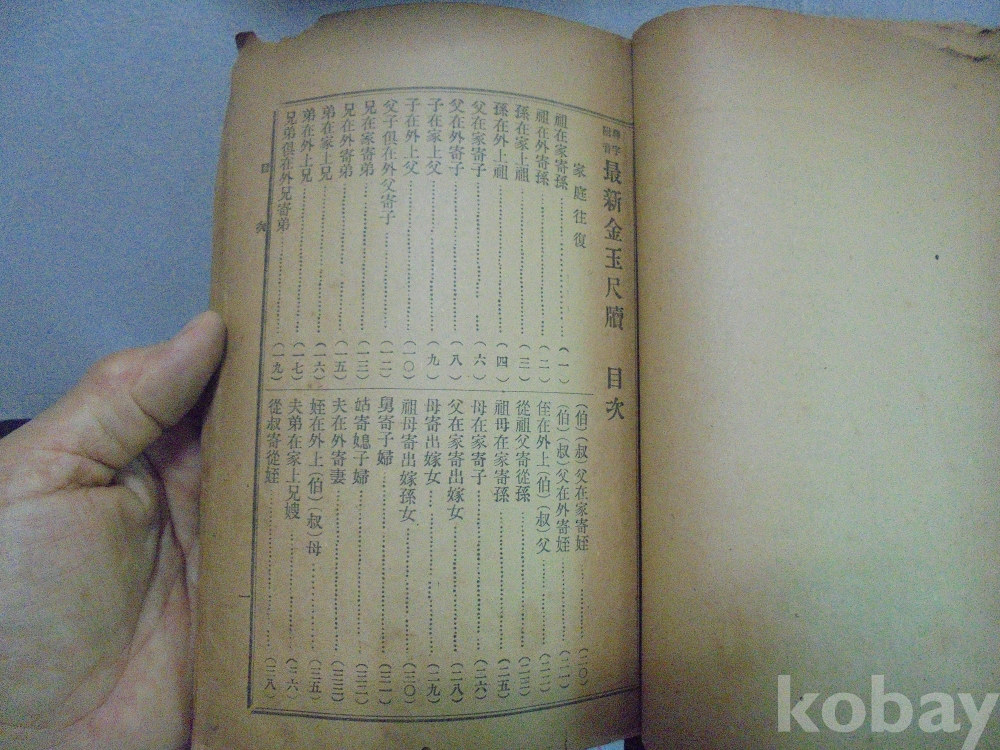 最新金玉尺牘 目次
家庭往復
祖在家寄孫 (一)
祖在外寄孫 (二)
孫在家上祖 (三)
孫在外上祖 (四)
父在家寄子 (六)
父在外寄子 (八)
子在家上父 (九)
子在外上父 (一〇)
父子俱在外父寄子 (一二)
兄在家寄弟 (一三)
兄在外寄弟 (一五)
弟在家上兄 (一六)
弟在外上兄 (一七)
兄弟俱在外兄寄弟 (一九)
(伯)(叔)父在家寄姪 (二〇)
(伯)(叔)父在外寄姪 (二一)
侄在外上(伯)(叔)父 (二二)
從祖父寄從孫 (二三)
祖母在家寄孫 (二五)
母在家寄子 (二六)
父在家寄出嫁女 (二八)
母寄出嫁女 (二九)
祖母寄出嫁孫女 (三〇)
舅寄子婦 (三一)
姑寄媳子婦 (三二)
夫在外寄妻 (三三)
姪在外上(伯)(叔)母 (三五)
夫弟在家上兄嫂 (三六)
從叔寄從姪 (三八)
目次
一
kobay